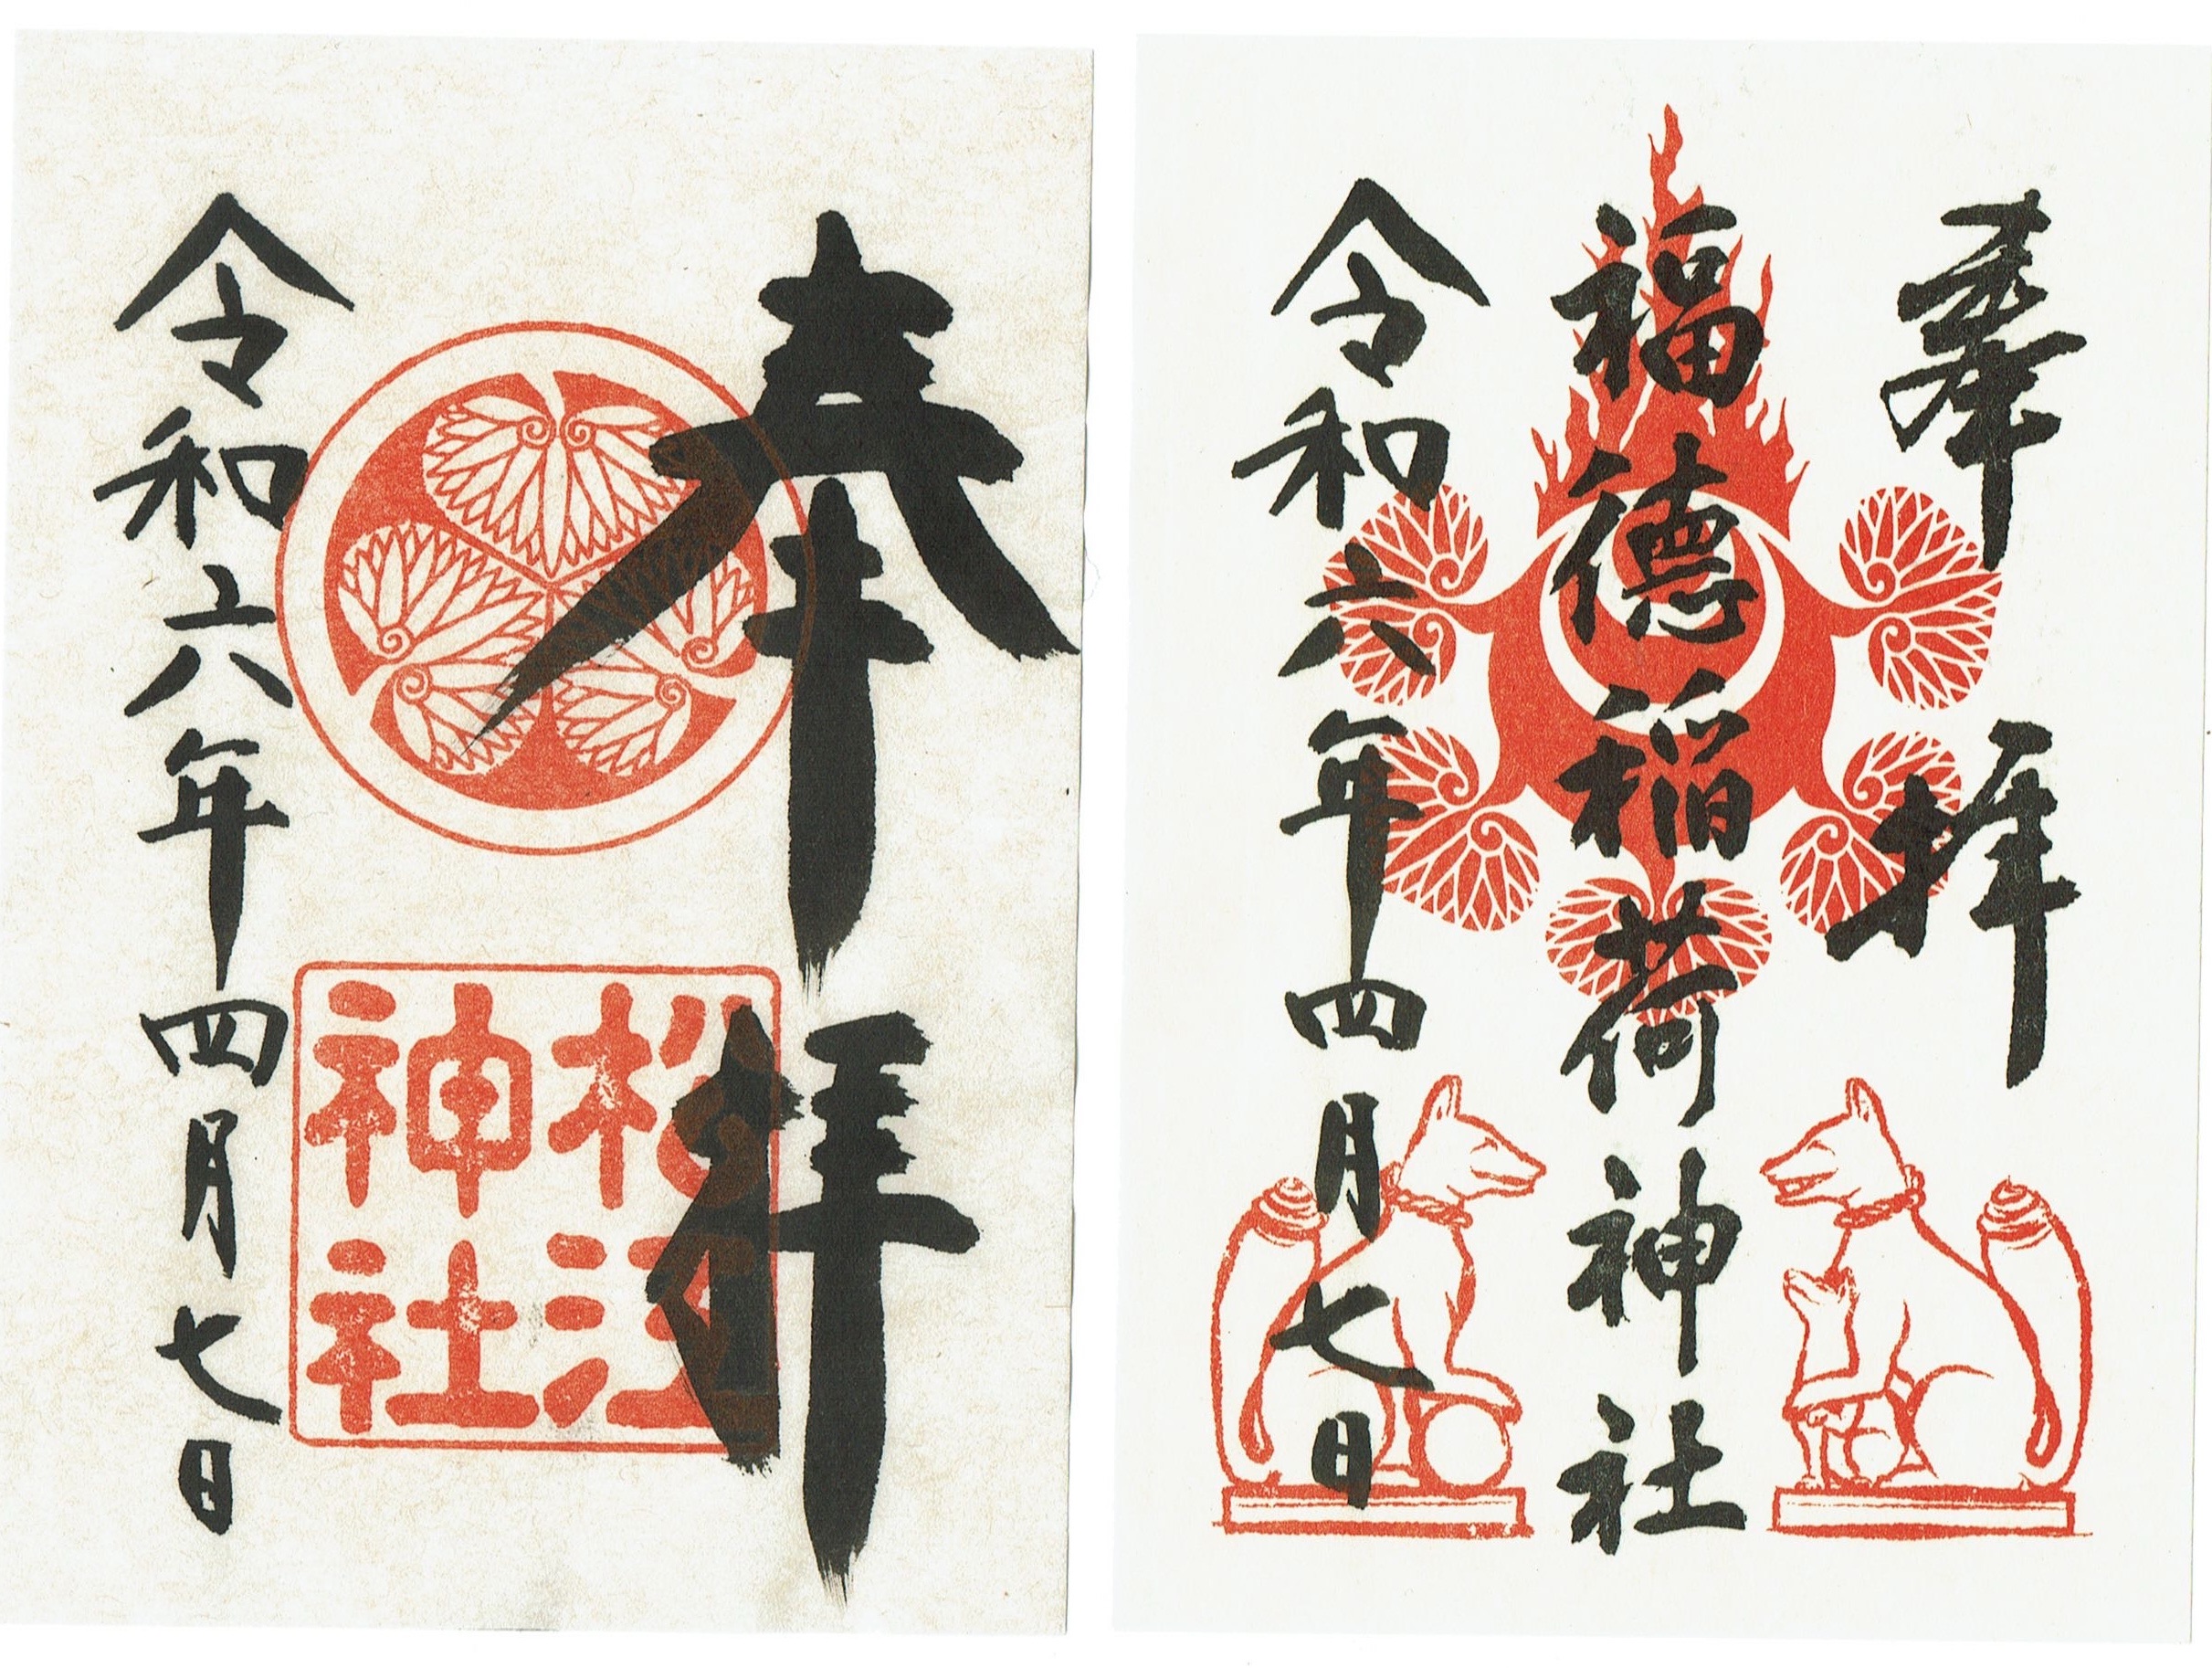 奉拝
松江
神社
令和六年四月七日
奉拝
福徳稲荷神社
令和六年四月七日